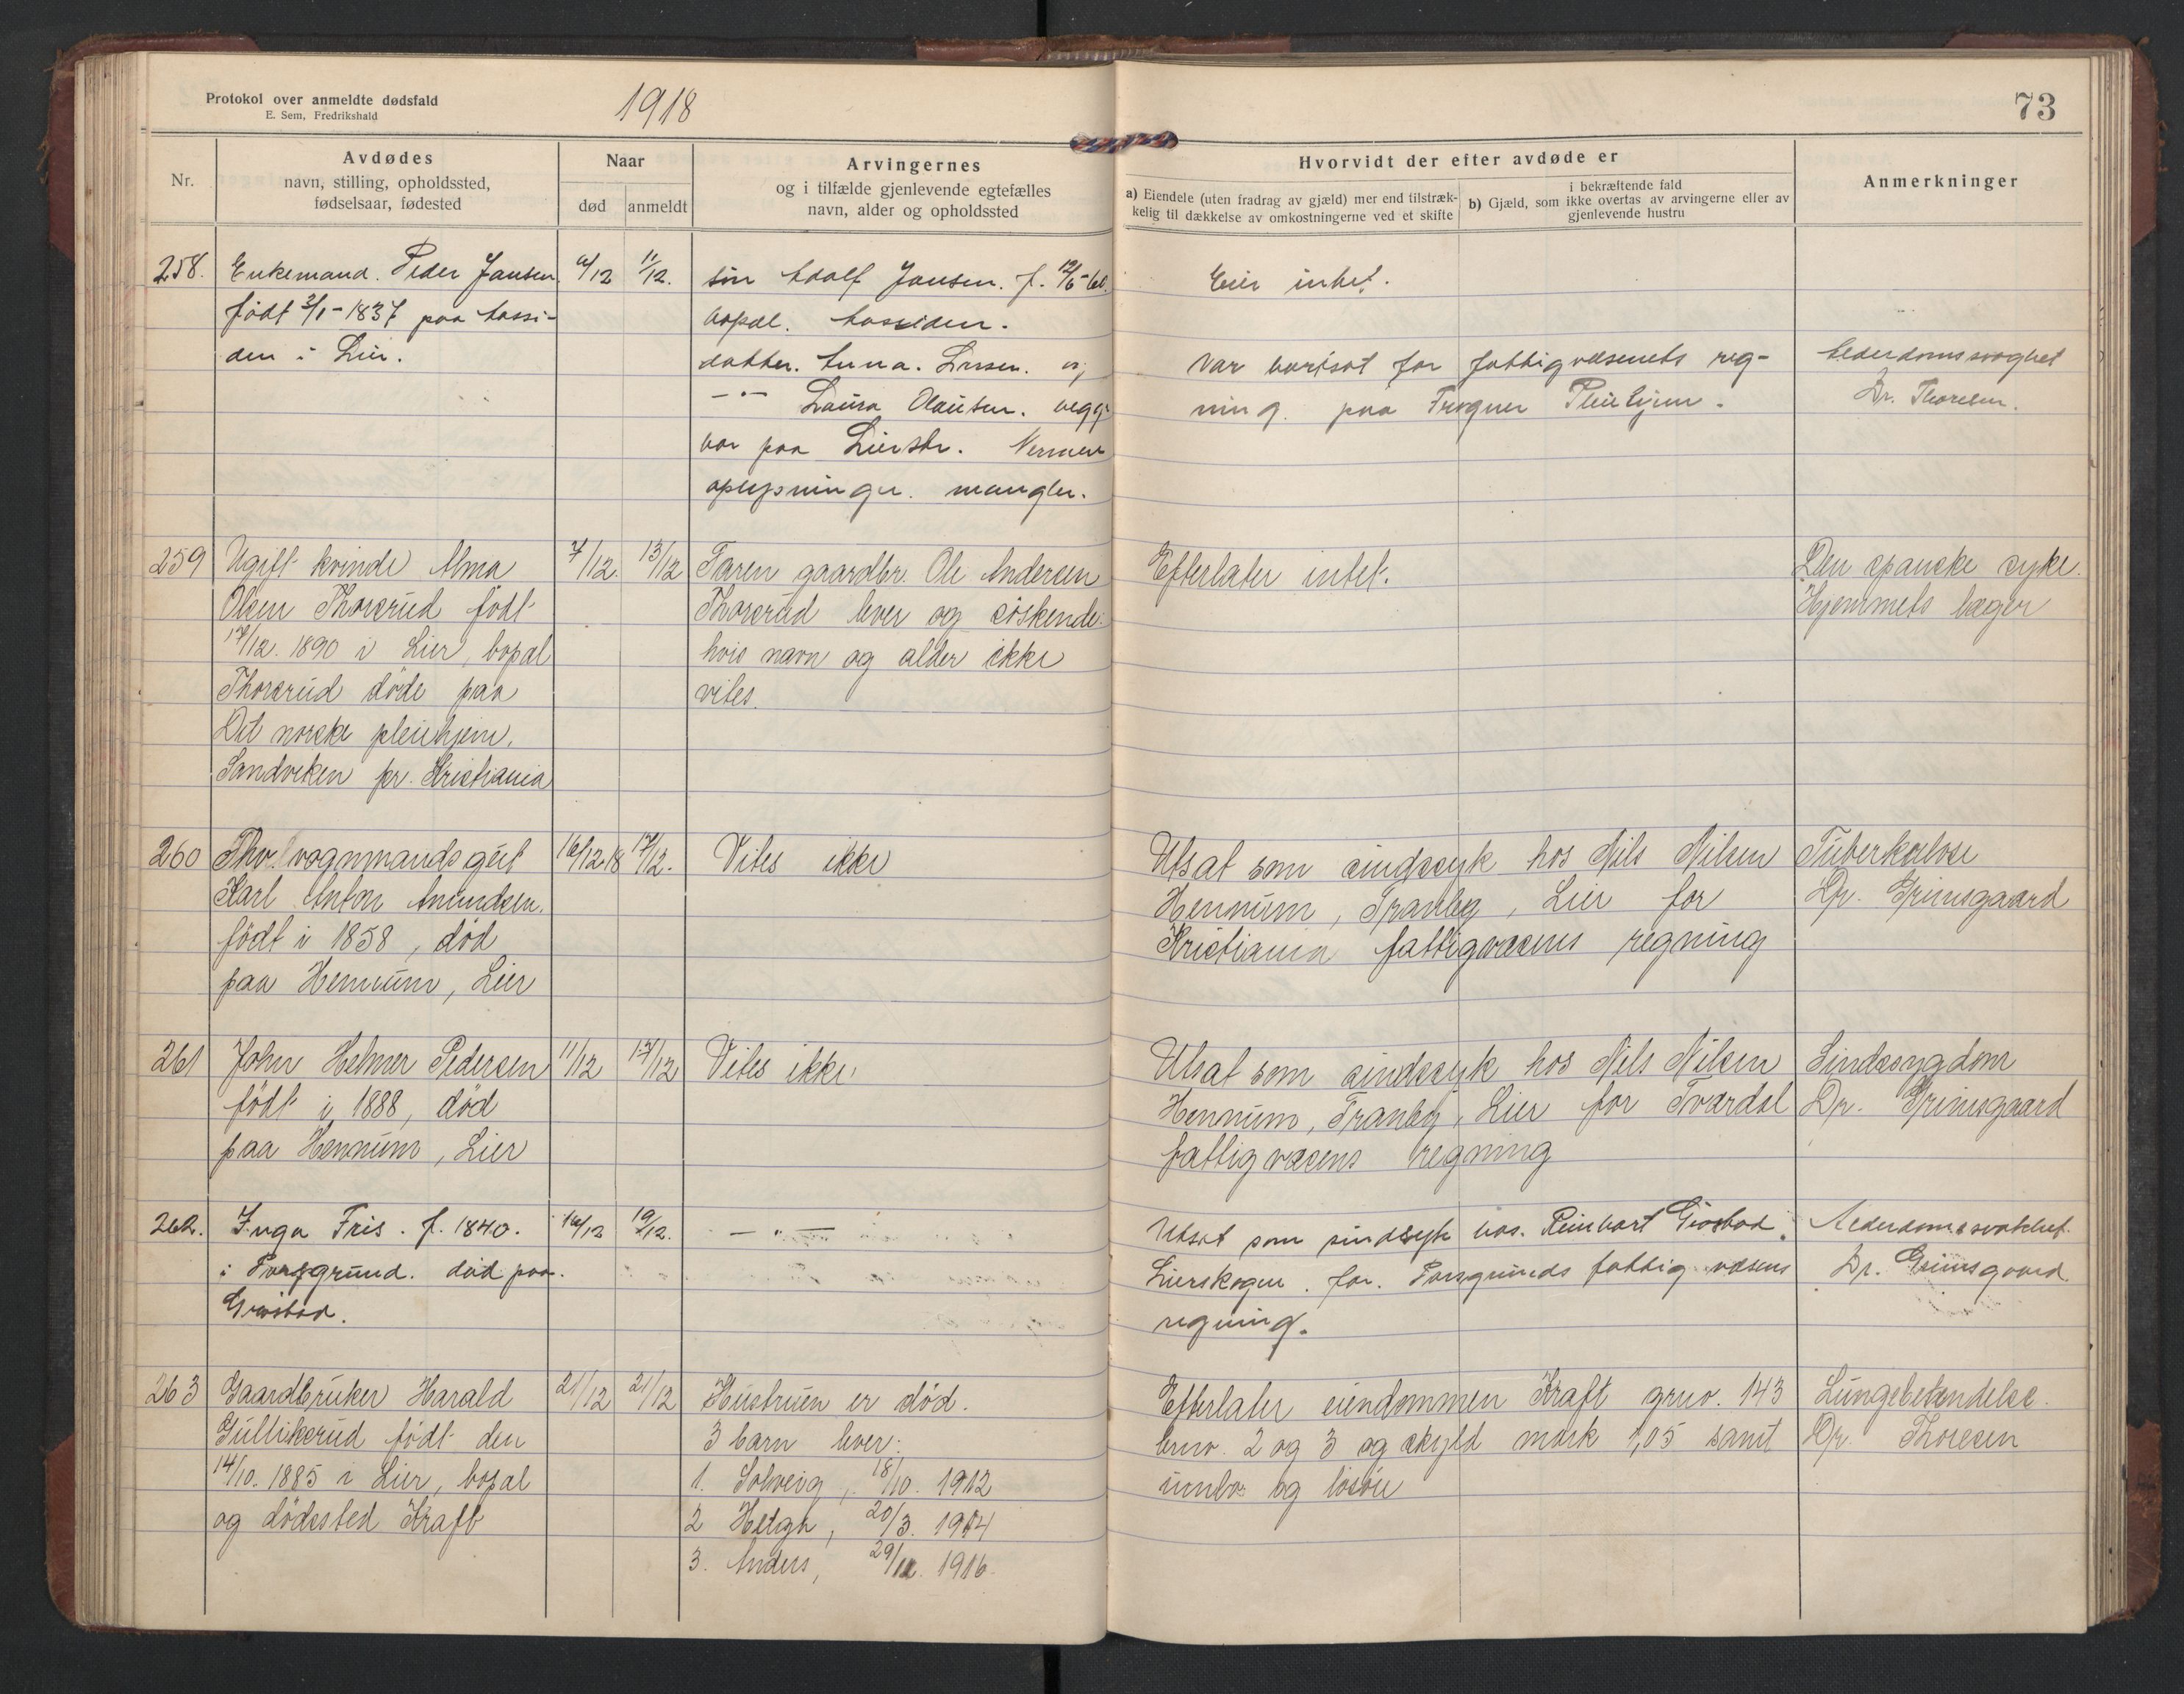 Protokol over anmeldte dødsfald
E. Sem, Fredrikshald
1918
73
Nr.
Avdødes
navn, stilling, opholdssted,
fødselsaar, fødested
Naar
død
anmeldt
Arvingernes
og i tilfælde gjenlevende egtefælles
navn, alder og opholdssted
Hvorvidt der efter avdøde er
a) Eiendele (uten fradrag av gjæld) mer end tilstræk-
kelig til dækkelse av omkostningerne ved et skifte
i bekræftende fald
b) Gjæld, som ikke overtas av arvingerne eller av
gjenlevende hustru
Anmerkninger
258.
Enkemand. Peder Jansen
født 3/1-1837 paa
den i Lier.
/12
11/12.
søn Adolf Jansen. f.
bopæl.
datter. Anna. Larsen. og
—"— Laura Olausen. begge
bor paa Lierstr. Nermere
oplysninger. mangler.
Eier intet.
var bortsat for fattigvæsenets reg-
ning. paa Frogner Pleiehjem.
Alderdomssvaghet
Dr. Thoresen.
259
Ugift kvinde Alma
Olsen Thorsrud født
17/12. 1890 i Lier, bopæl
Thorsrud døde paa
Det norske pleiehjem,
Sandviken pr. Kristiania
7/12.
13/12
Faren gaardbr. Ole Andersen
Thorsrud lever og søskende
hvis navn og alder ikke
vites.
Efterlater intet.
Den spanske syke.
Hjemmets læger
260
Fhv. vognmandsgut
Karl Anton Amundsen.
født i 1858, død
paa Hennum, Lier
16/12 18
17/12.
Vites ikke
Utsat som sindssyk hos Nils Nilsen
Hennum, Tranby, Lier for
Kristiania fattigvæsens regning
Tuberkulose
Dr. Grimsgaard
261
John Helmer Pedersen
født i 1888, død
paa Hennum, Lier
11/12
17/12
Vites ikke
Utsat som sindssyk hos Nils Nilsen
Hennum, Tranby, Lier for Tværdal
fattigvæsens regning
Sindssygdom
Dr. Grimsgaard
262.
Inga Fris. f. 1840.
i Porsgrund. død paa.
Grøsbod.
16/12
19/12.
— " —
Utsat som sindsyk hos. Reinhart Grøsbod.
Lierskogen. for. Porsgrunds fattigvæsens
regning.
Alderdomssvakhet.
Dr. Grimsgaard
263
Gaardbruker Harald
Gullikrud født den
14/10. 1885 i Lier, bopæl
og dødssted Kraft
21/12
21/12
Hustruen er død.
3 barn lever:
1. Solveig, 18/10. 1912
2 Helga, 20/3. 1914
3. Anders, 29/11. 1916.
Efterlater eiendommen Kraft grno. 143
brno. 2 og 3 og skyld mark 1,05 samt
innbo og løsøre
Lungebetændelse.
Dr. Thoresen